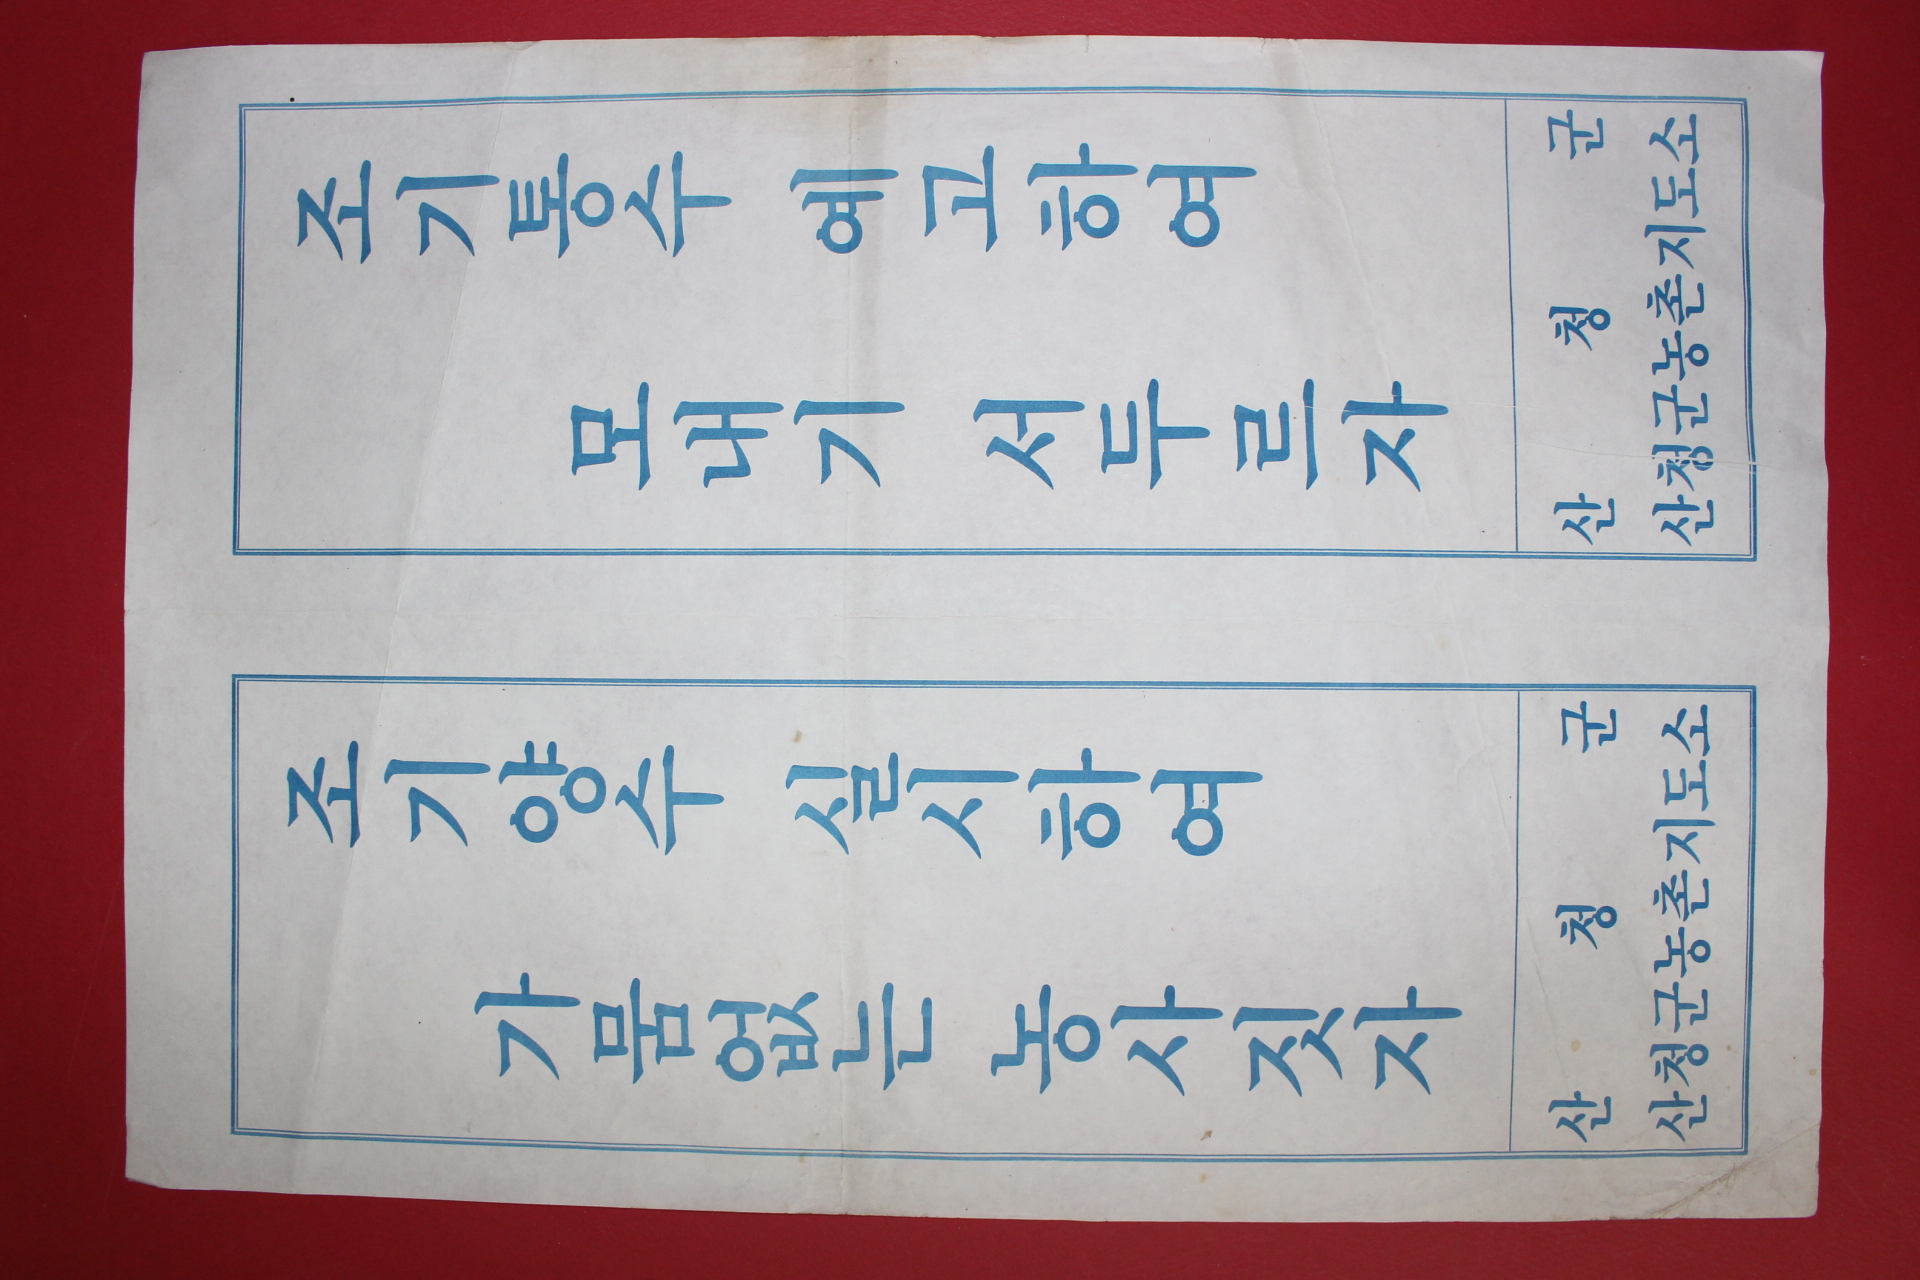 조기통수 예고하여
모내기 서두르자
산 청 군
산청군농촌지도소
조기양수 실시하여
가뭄없는 농사짓자
산 청 군
산청군농촌지도소